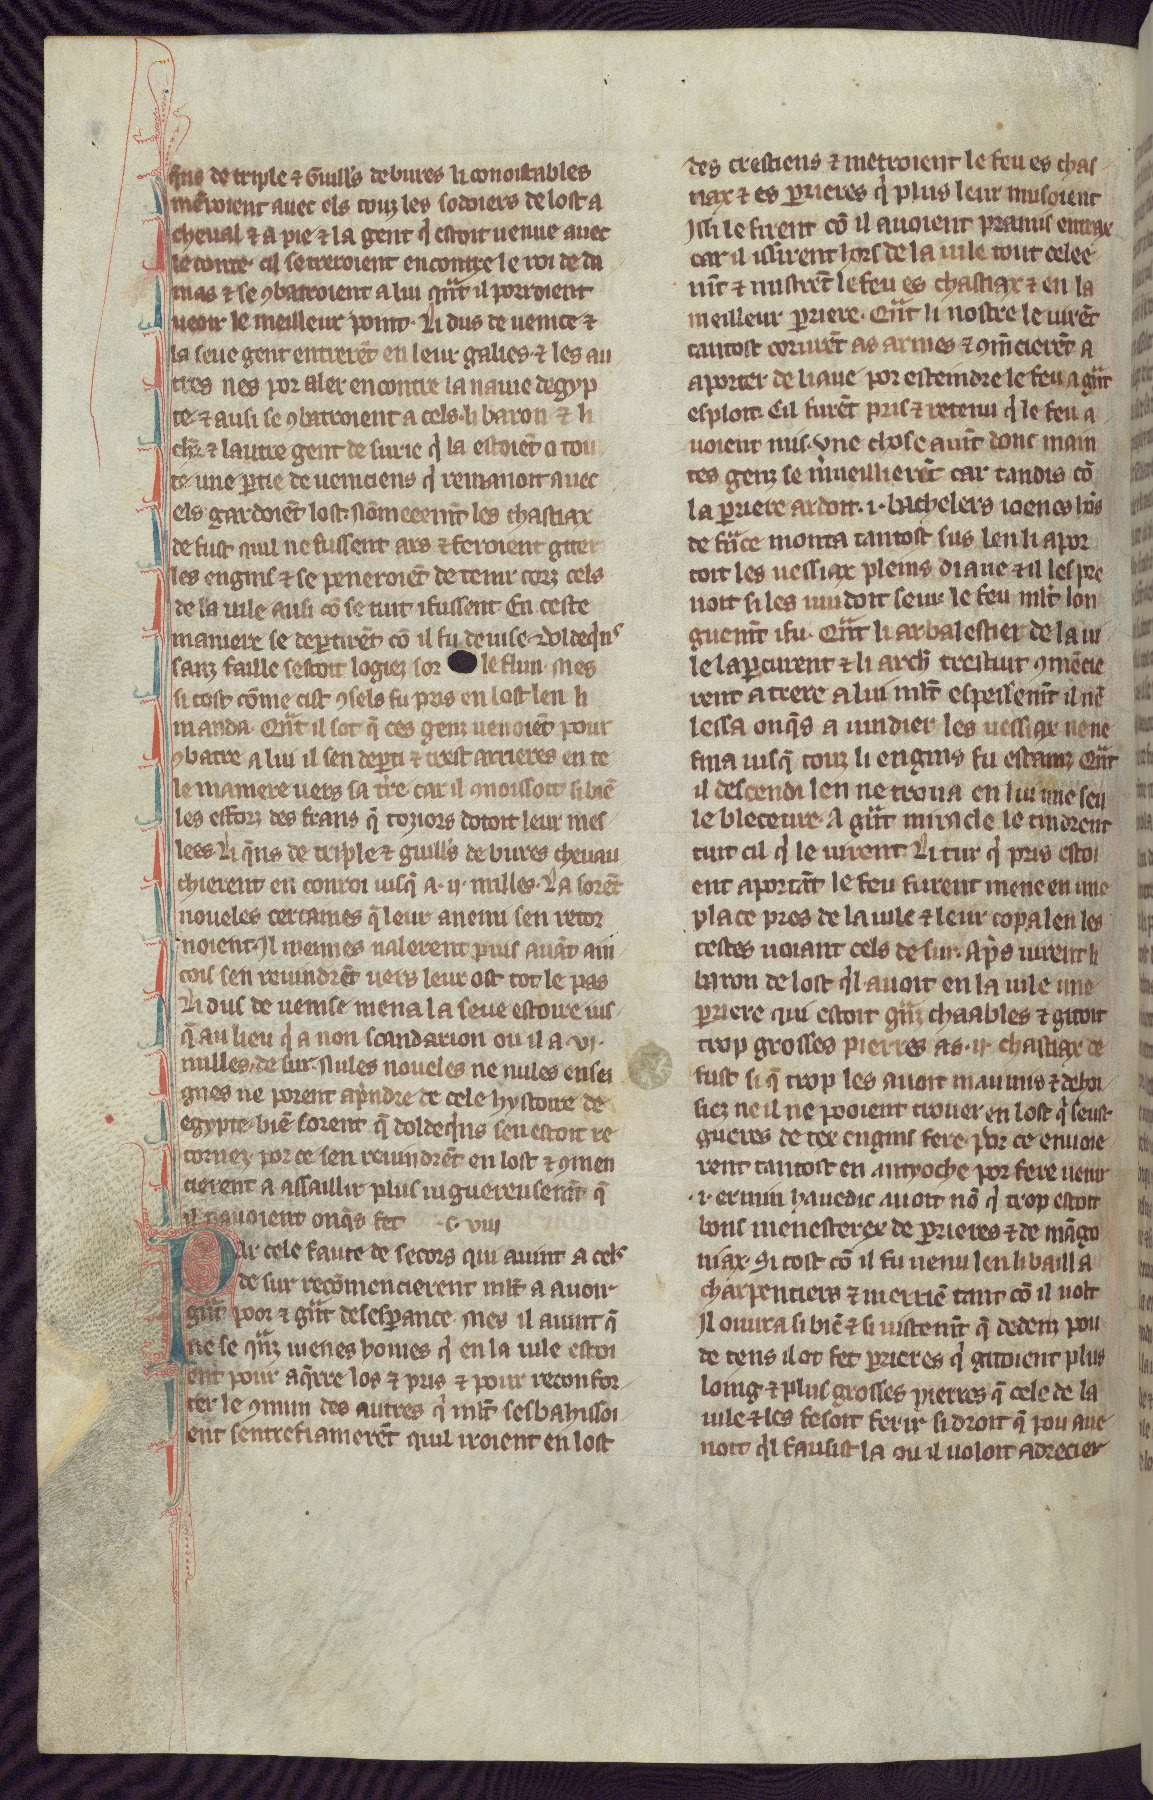 q̃ns de triple ⁊ Guill's de bures li conoistables
menroient auec els touz les sodoiers de lost a
cheual ⁊ a pie ⁊ la gent q̇ estoit uenue auec
le conte. cil se treroient encontre le roi de da
mas ⁊ se ꝯbatroient a lui qñt il porroient
ueoir le meilleur point. Li dus de uenice ⁊
la seue gent entrerẽt en leur galies ⁊ les au
tres nes por aler encontre la nauie degyp
te. ⁊ ausi se ꝯbatroient a cels. li baron ⁊ li
chr̃ ⁊ lautre gent de surie q̇ la estoiẽt o tou
te une ꝑtie de ueniciens q̇ remanoit auec
els gardoiẽt lost. nõmeemñt les chastiax
de fust quil ne fussent ars ⁊ feroient giter
les engins ⁊ se peneroiẽt de tenir corz cels
de la uile ausi cõ se tuit i fussent En ceste
maniere se deꝑtirẽt cõ il fu deuise. doldeq̃ns
sanz faille sestoit logiez sor le flun. mes
si tost cõme cist ꝯsels fu pris en lost len li
manda. Qñt il sot q̃ ces genz uenoiẽt pour
ꝯbatre a lui il sen deꝑti ⁊ trest arrieres en te
le maniere uers sa tr̃e. car il ꝯnoissoit si biẽ
les efforz des frans q̃ toziors dotoit leur mes
lees Li q̃ns de triple ⁊ guill's de bures cheuau
chierent en conroi iusq̃ a .ii. milles. La sorẽt
noueles certaines q̃ leur anemi sen retor
noient. Il meimes nalerent puis auãt ain
cois sen reuindrẽt uers leur ost tot le pas
Li dus de uenise mena la seue estoire ius
q̃ au lieu q̇ a non scandarion ou il a .vi.
milles de sur. Nules noueles ne nules ensei
gnes ne porent ap̃ndre de cele hystoire de
egypte. biẽ sorent q̃ doldeq̃ns sen estoit re
tornez. por ce sen reuindrẽt en lost ⁊ ꝯmen
cierent a assaillir plus uiguereusemñt q̃
il nauoient onq̃s fet .c. viii
Par cele faute de secors qui auint a cels
de sur recõmencierent ml̃t a auoir
gñt poor ⁊ gñt desesꝑance. Mes il auint q̃
ne se qñz iuenes homes q̇ en la uile estoi
ent pour aq̃rre los ⁊ pris ⁊ pour reconfor
ter le ꝯmun des autres q̇ ml̃t sesbahissoi
ent sentrefiancerẽt quil iroient en lost
des crestiens ⁊ metroient le feu es chas
tiax ⁊ es ꝑrieres q̇ plus leur nuisoient
Issi le firent cõ il auoient pramis entrax
car il issirent hors de la uile tout celee
mñt ⁊ mistrẽt le feu es chastiax ⁊ en la
meilleur ꝑriere. Qñt li nostre le uirẽt
tantost corurẽt as armes ⁊ ꝯmẽcierẽt a
aporter de liaue por esteindre le feu a gñt
esploit. Cil furẽt pris ⁊ retenu q̇ le feu a
uoient mis. Vne chose auĩt donc main
tes genz se m̃ueillierẽt car tandis cõ
la ꝑriere ardoit .i. bachelers ioenes hõs
de frãce monta tantost sus len li apor
toit les uessiax pleins diaue ⁊ il les pre
noit si les uuidoit seur le feu ml̃t lon
guemñt i fu. Qñt li arbalestier de la ui
le laꝑcurent ⁊ li arch' trestuit ꝯmẽcie
rent a trere a lui ml̃t espessemñt il ne
lessa onq̃s a uuidier les uessiax ne ne
fina iusq̃ touz li engins fu estainz Qñt
il descendi len ne troua en lui une seu
le bleceure. A gñt miracle le tindrent
tuit cil q̇ le uirent. Li tur q̇ pris estoi
ent aportãt le feu furent mene en une
place pres de la uile ⁊ leur copa len les
testes uoiant cels de sur. Ap̃s uirent li
baron de lost q̇l auoit en la uile une
ꝑriere qui estoit gñz chaables ⁊ gitoit
trop grosses pierres as .ii. chastiax de
fust si q̃ trop les auoit maumis ⁊ debri
siez ne il ne pooient trouer en lost q̇ seust
gueres de tex engins fere. Por ce enuoie
rent tantost en antyoche por fere uenir
.i. ermin hauedic auoit nõ q̇ trop estoit
bons menesterex de ꝑrieres ⁊ de mãgo
niax. Si tost cõ il fu uenu len li bailla
charpentiers ⁊ merriẽ tant cõ il uolt
Il ouura si biẽ ⁊ si uistemñt q̃ dedenz pou
de tens il ot fet ꝑrieres q̇ gitoient plus
loing ⁊ plus grosses pierres q̃ cele de la
uile ⁊ les fesoit ferir si droit q̃ pou aue
noit q̇l fausist la ou il uoloit adrecier